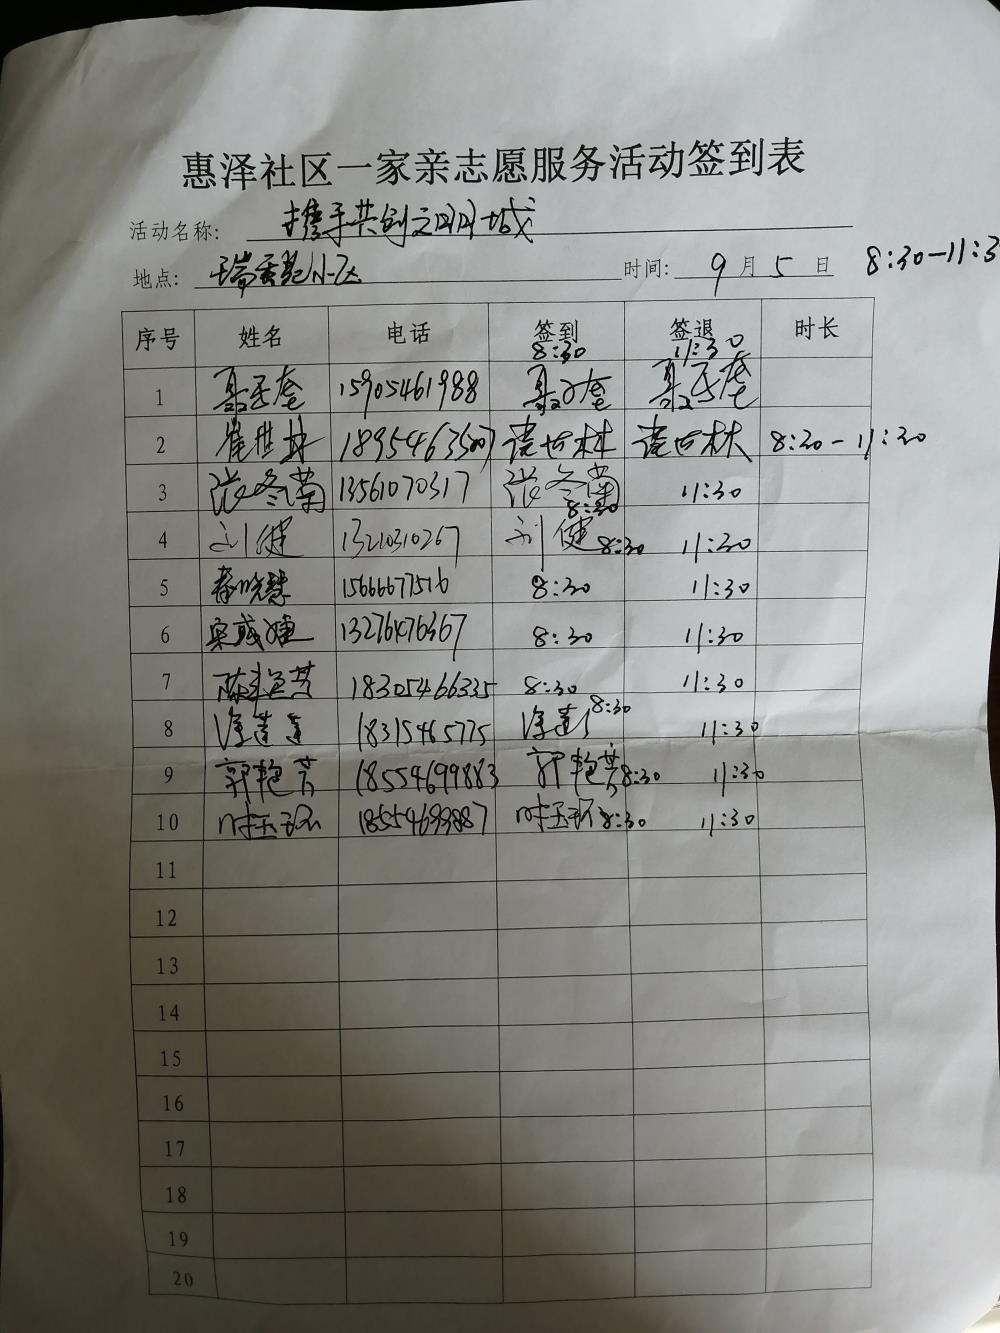 惠泽社区一家亲志愿服务活动签到表
活动名称: 携手共创文明城
地点: 小区 时间: 9 月 5 日 8:30-11:3
序号 姓名 电话 签到 签退 时长
8:30 11:30
1 15905461988
2 崔世林 崔世林 崔世林 8:30-11:30
3 张冬菊 13561070317 张冬菊 8:30 11:30
4 刘健 13210310267 刘健 8:30 11:30
5 秦晓慧 15666677516 8:30 11:30
6 13276476367 8:30 11:30
7 陈艳芳 18305466335 8:30 11:30
8 徐莲莲 18315465775 徐莲 8:30 11:30
9 郭艳芳 18554699883 郭艳芳 8:30 11:30
10 时玉环 18554699887 时玉环 8:30 11:30
11
12
13
14
15
16
17
18
19
20